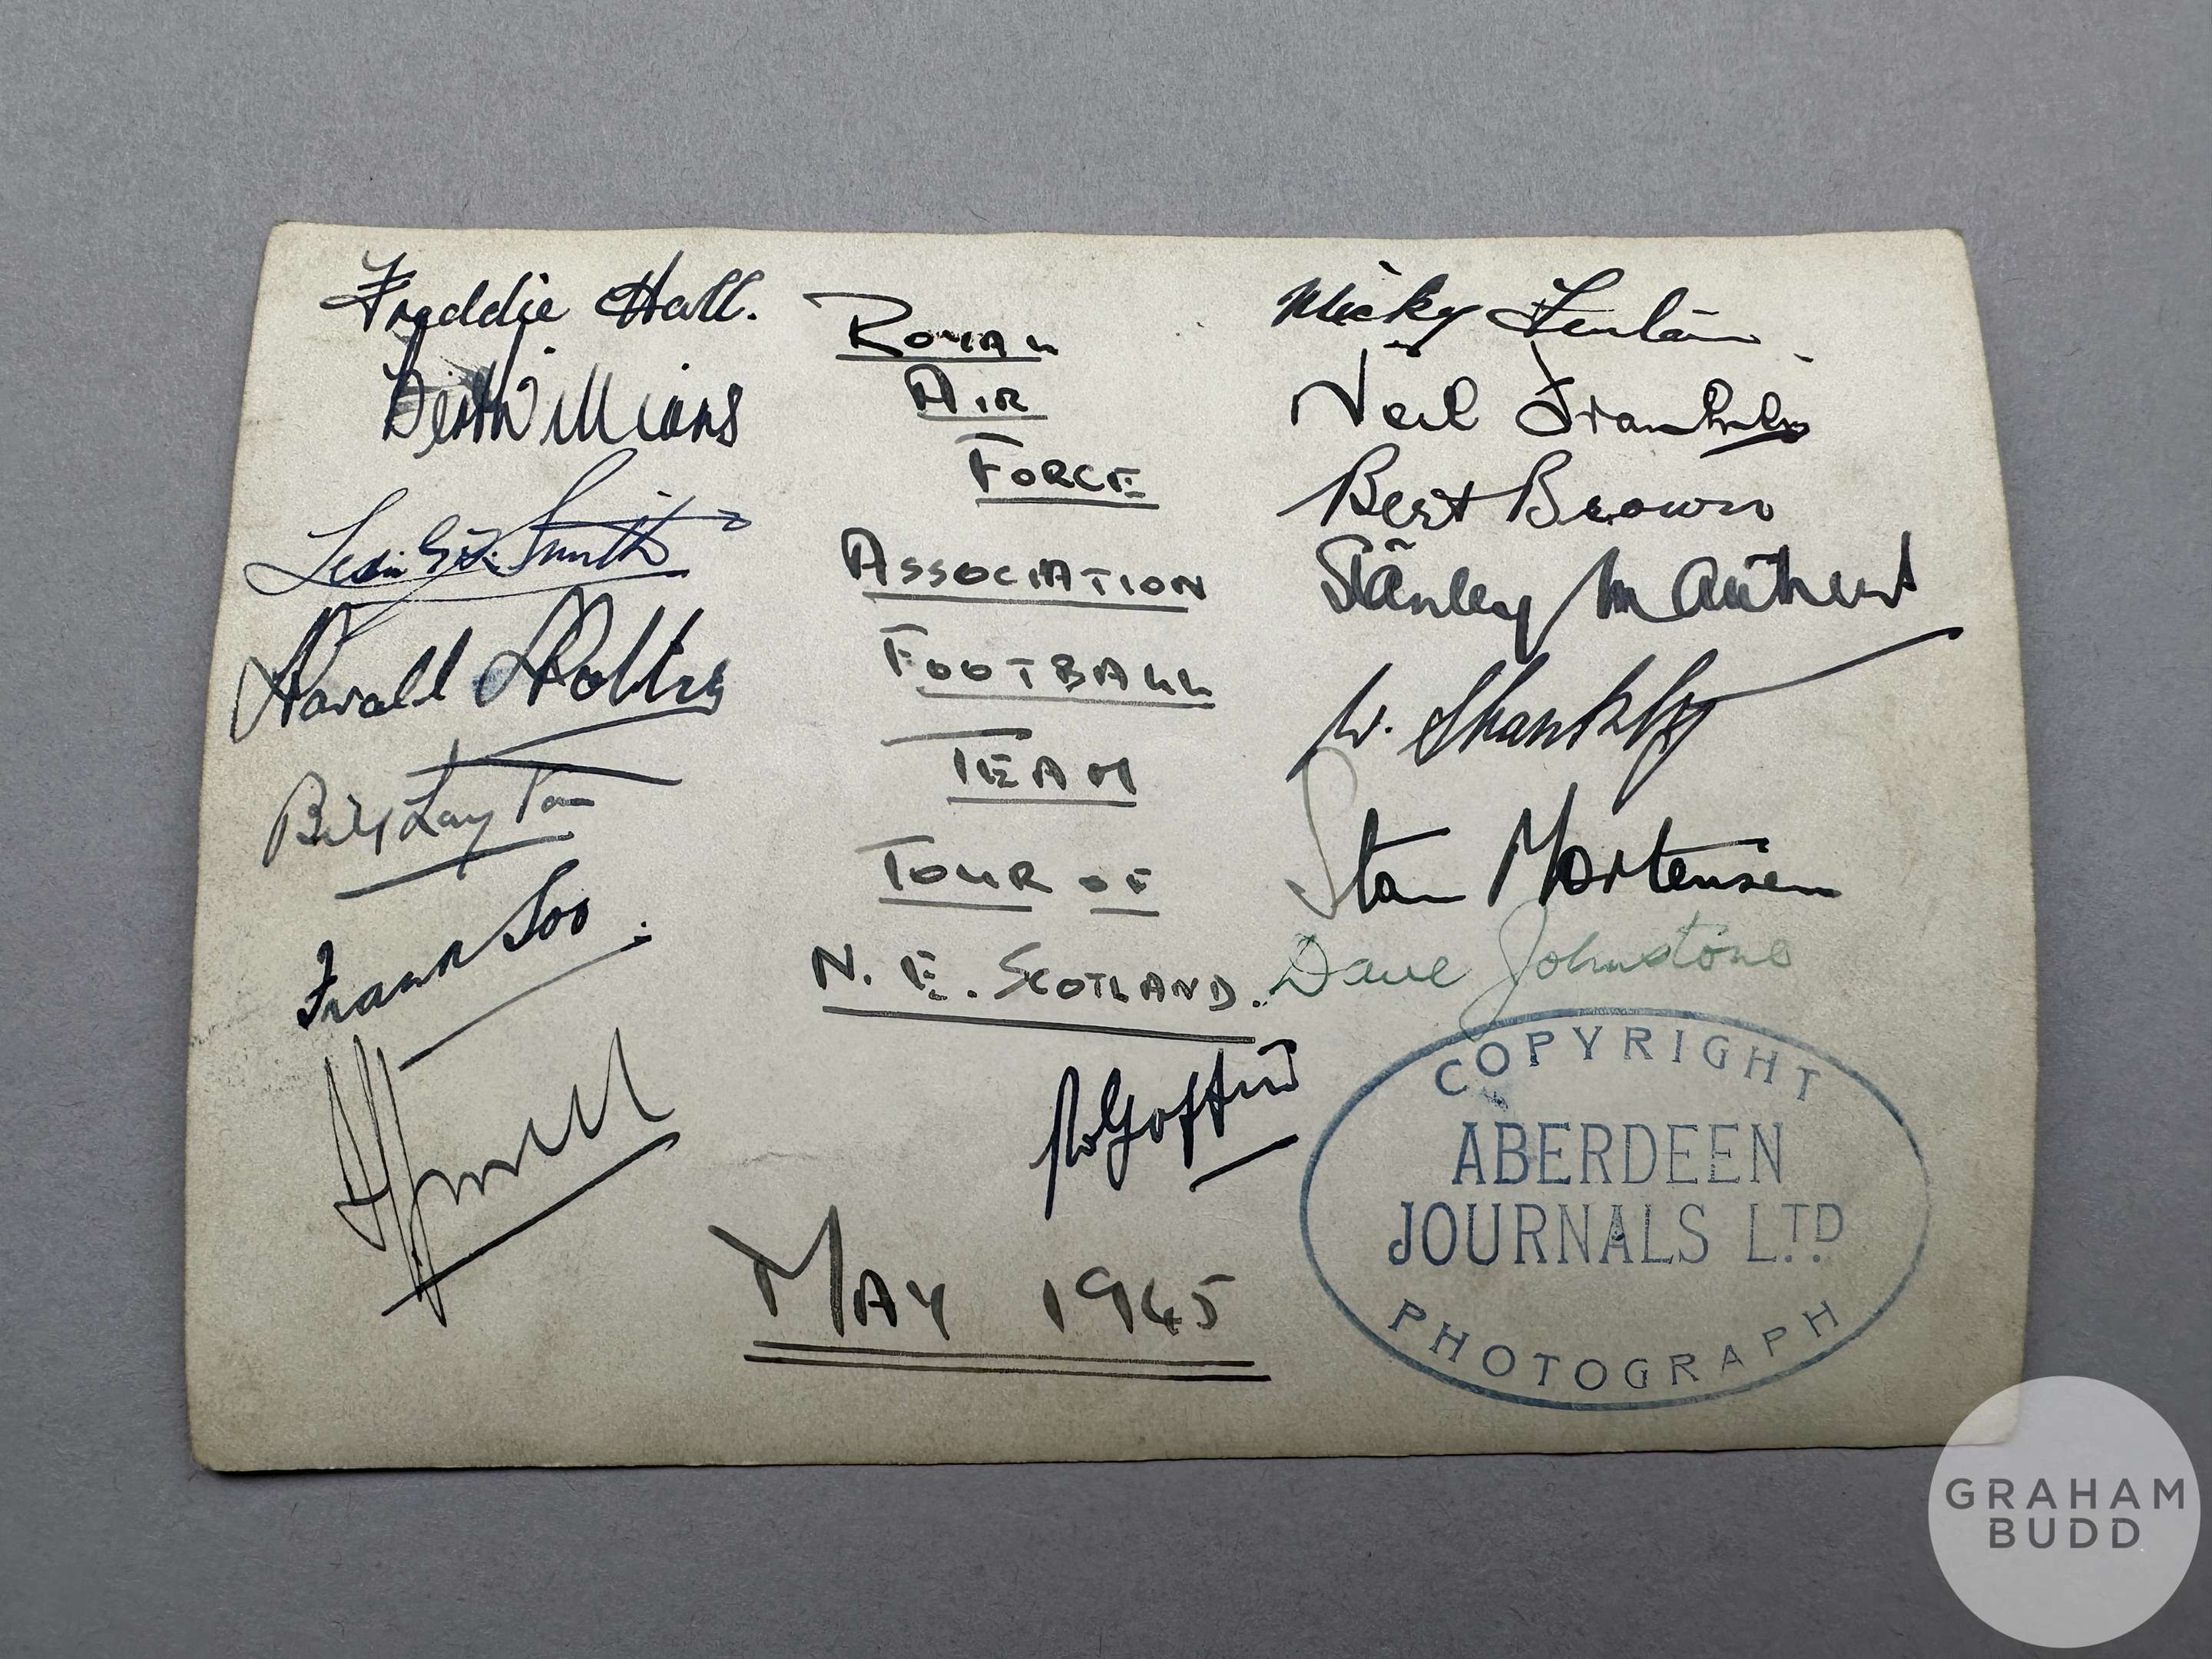 Freddie Hall.
Bert Williams
Leslie G.F. Smith
Harold Hobbis
Bill Layton
Frank Soo.
ROYAL
AIR
FORCE
ASSOCIATION
FOOTBALL
TEAM
TOUR OF
N. E. SCOTLAND.
MAY 1945
Micky Fenton
Neil Franklin
Bert Brown
Stanley Matthews
W. Shankly
Stan Mortensen
Dave Johnstone
COPYRIGHT
ABERDEEN
JOURNALS LTD
PHOTOGRAPH
GRAHAM
BUDD